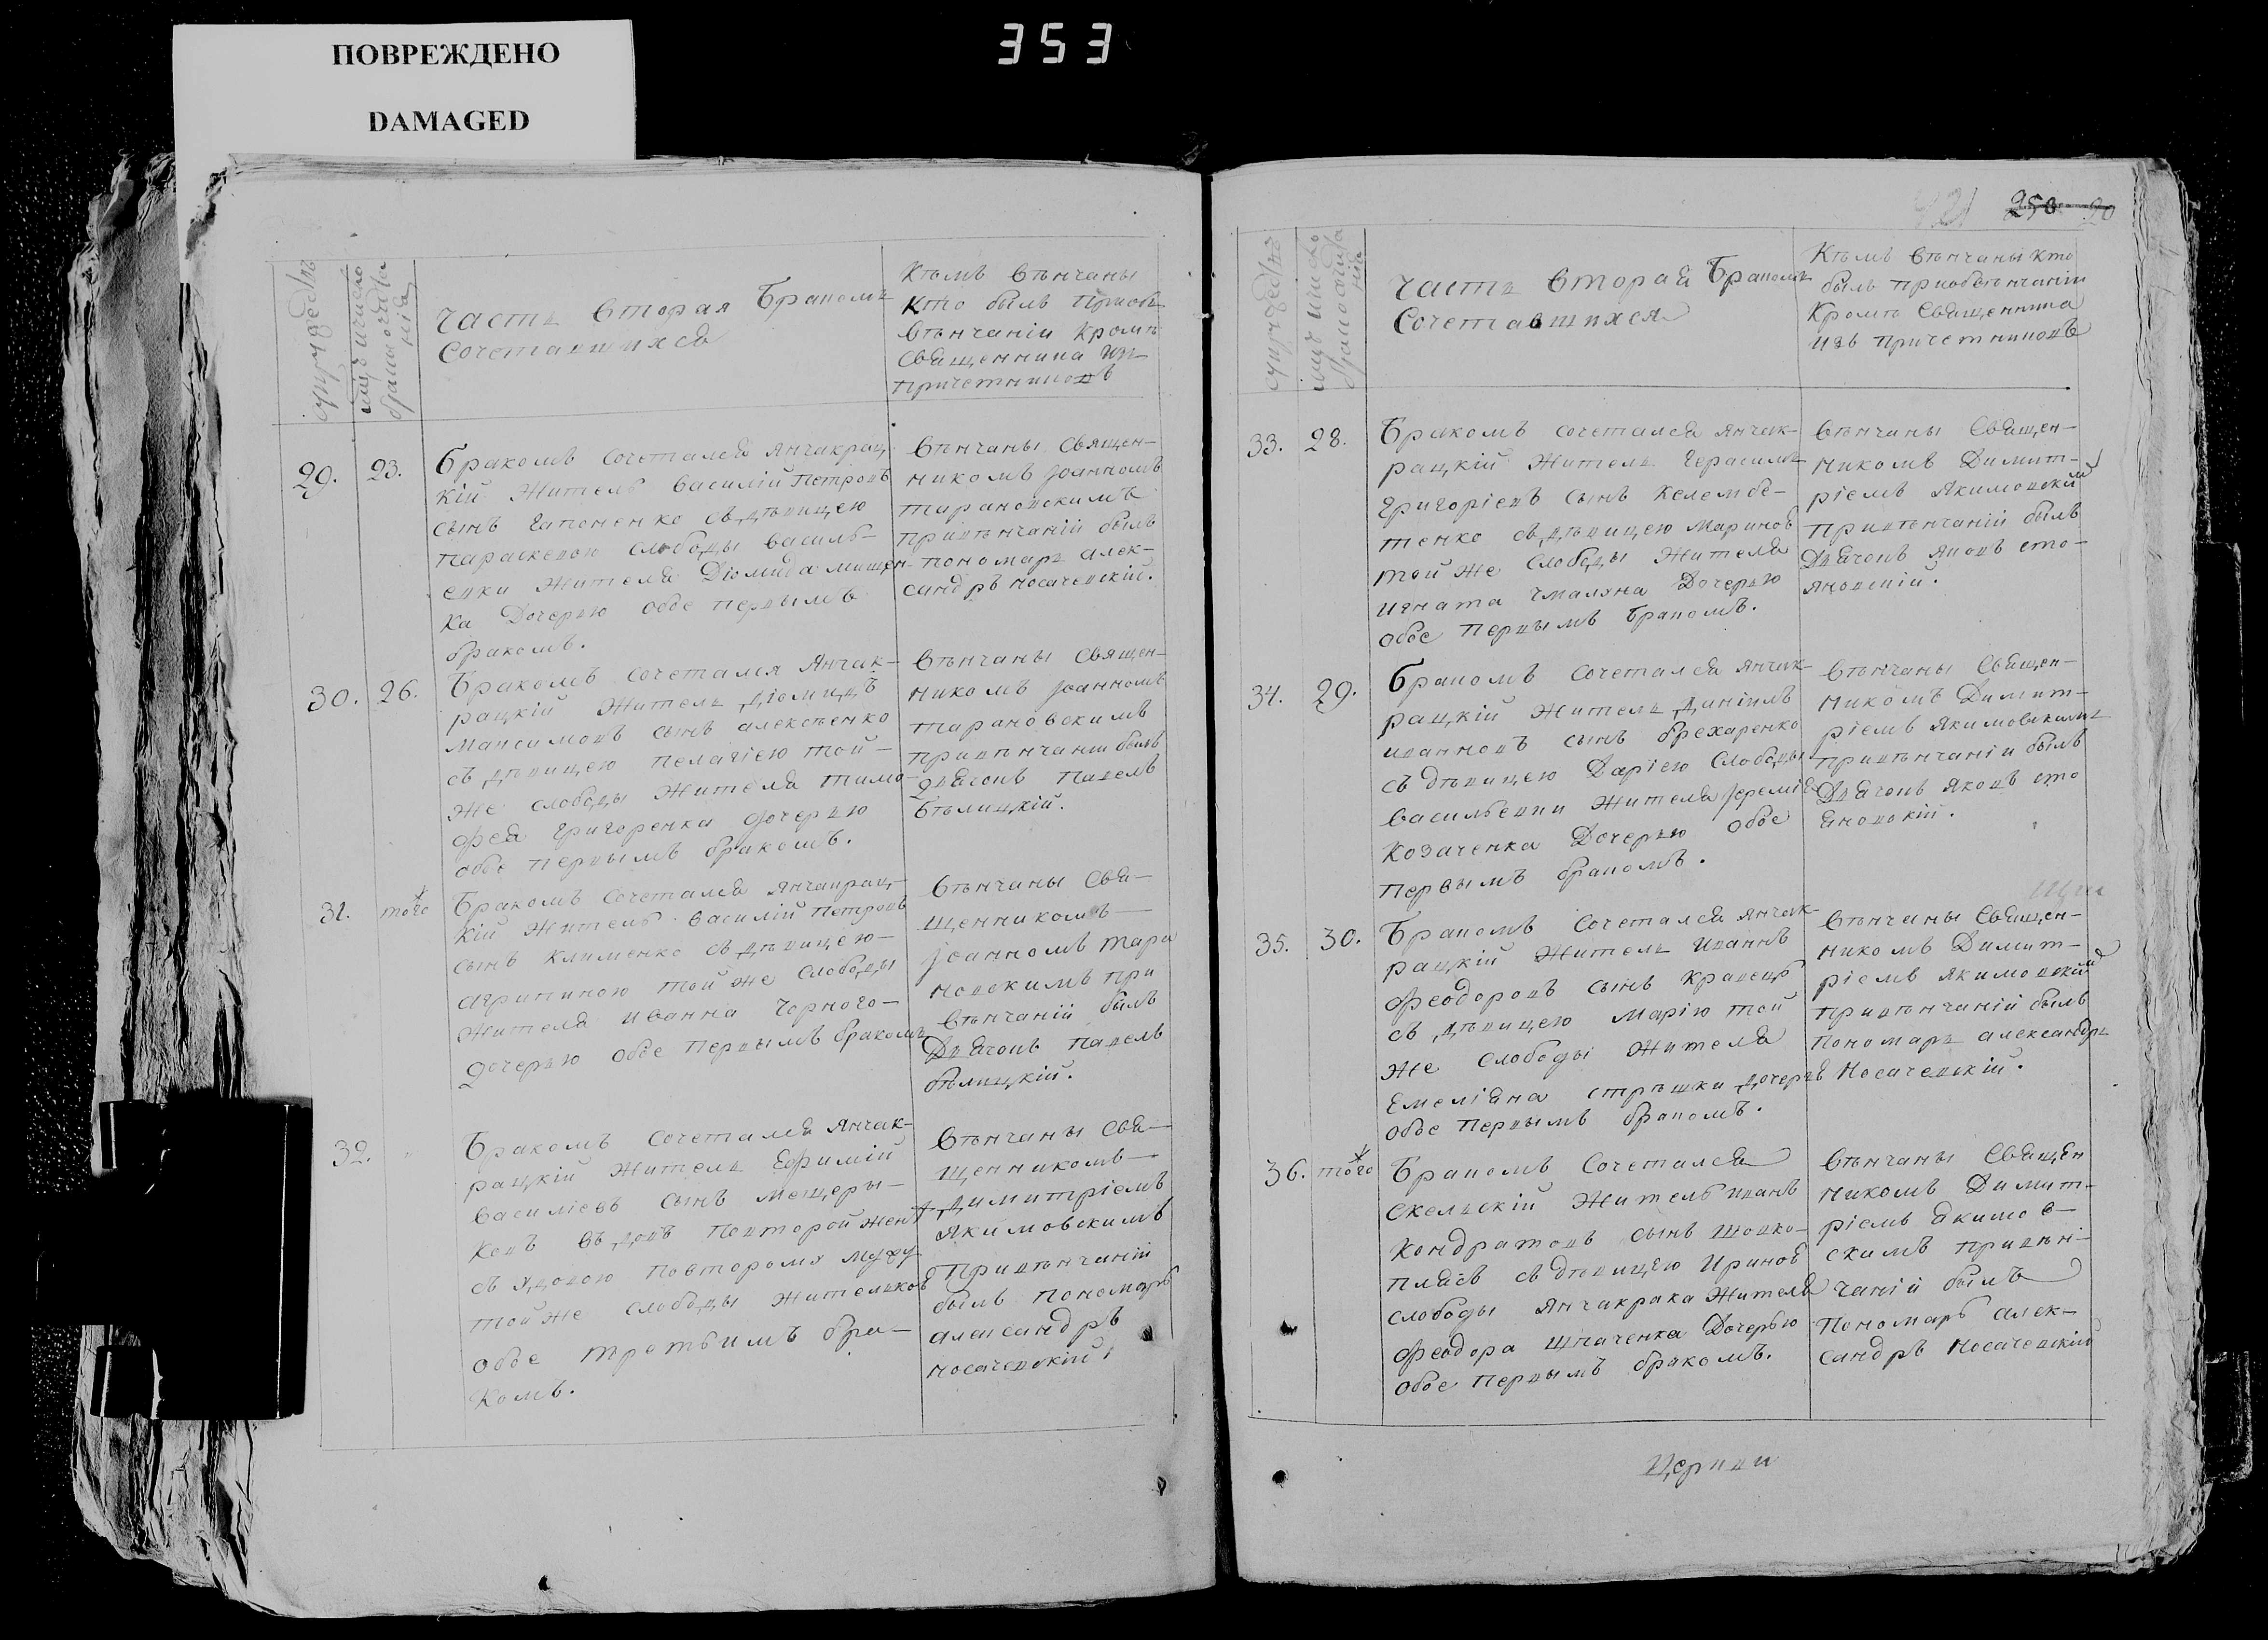 353
ПОВРЕЖДЕНО
DAMAGED
часть вторая Бракомъ
Сочетавшихся
Кѣмъ вѣнчаны
Кто былъ приоб
вѣнчаніи Кромѣ
Священника изъ
причетниковъ
29. 23.
бракомъ сочетался Янчакрац
кій житель василій петровъ
сынъ гапоненко съ дѣвицею
параскевою слободы василь-
евки жителя Діомида мищен-
ка Дочерью обое первымъ
бракомъ.
вѣнчаны Священ-
никомъ Іоанномъ
тарановскимъ
привѣнчаній былъ
пономарь алек-
сандръ носачевскій.
30. 26.
Бракомъ сочетался Янчак-
рацкій житель Діомидъ
максимовъ сынъ алексѣенко
съ дѣвицею пелагіею той-
же слободы жителя тимо-
фея григоренка дочерью
обое первымъ бракомъ.
вѣнчаны Священ-
никомъ Іоанномъ
тарановскимъ
привѣнчаніи былъ
дьячокъ павелъ
бѣлицкій.
31. того
Бракомъ сочетался Янчакрац-
кій житель василій петровъ
сынъ Клименко съ дѣвицею-
агрипиною той же слободы
жителя иванна Чорного-
дочерью обое первымъ бракомъ
вѣнчаны Свя-
щенникомъ-
Іоанномъ тара
новскимъ при
вѣнчаній былъ
Дьячокъ павелъ
бѣлицкій.
32. "
Бракомъ сочетался Янчак-
рацкій житель Ефимій
василіевъ сынъ мещеря-
ковъ вдовъ повторой женѣ
съ удовою повторому мужу
той же слободы жителькою
обое третьимъ бра-
комъ.
вѣнчаны Свя-
щенникомъ-
Димитріемъ
якимовскимъ
Привѣнчаній
былъ пономарь
александръ
носачевскій.
250 20
часть вторая Бракомъ
Сочетавшихся
Кѣмъ вѣнчаны Кто
былъ приобвѣнчаніи
Кромѣ Священника
изъ причетниковъ
33. 28.
Бракомъ сочетался янчак-
рацкій житель герасимъ
григоріевъ сынъ келембе-
тенко съ дѣвицею мариною
той же слободы жителя
игната чмаляна Дочерью
обое первымъ бракомъ.
вѣнчаны Священ-
никомъ Димит-
ріемъ якимовскимъ
привѣнчаній былъ
Дьячокъ яковъ сто-
яновскій.
34. 29.
Бракомъ сочетался янчак-
рацкій житель даніилъ
иванновъ сынъ брехаренко
съ дѣвицею Даріею слободы
васильевки жителя Іереміи
Козаченка Дочерью обое
первымъ бракомъ.
вѣнчаны Священ-
никомъ Димит-
ріемъ якимовскимъ
привѣнчаніи былъ
Дьячокъ Яковъ сто
яновскій.
35. 30.
Бракомъ сочетался янчак-
рацкій житель иваннъ
феодоровъ сынъ кравецъ
съ дѣвицею марію той
же слободы жителя
Емеліяна стрѣшки дочерью
обое первымъ бракомъ.
вѣнчаны Священ-
никомъ Димит-
ріемъ якимовскимъ
привѣнчаній былъ
пономарь александръ
Носачевскій.
36. того
Бракомъ сочетался
скельскій житель иванъ
кондратовъ сынъ шовко-
плясъ съ дѣвицею Ириною
слободы янчакрака жителя
феодора шпаченка Дочерью
обое первымъ бракомъ.
вѣнчаны Священ
никомъ Димит-
ріемъ якимов-
скимъ привѣн-
чаній былъ
пономарь алек-
сандръ носачевскій
Церкви